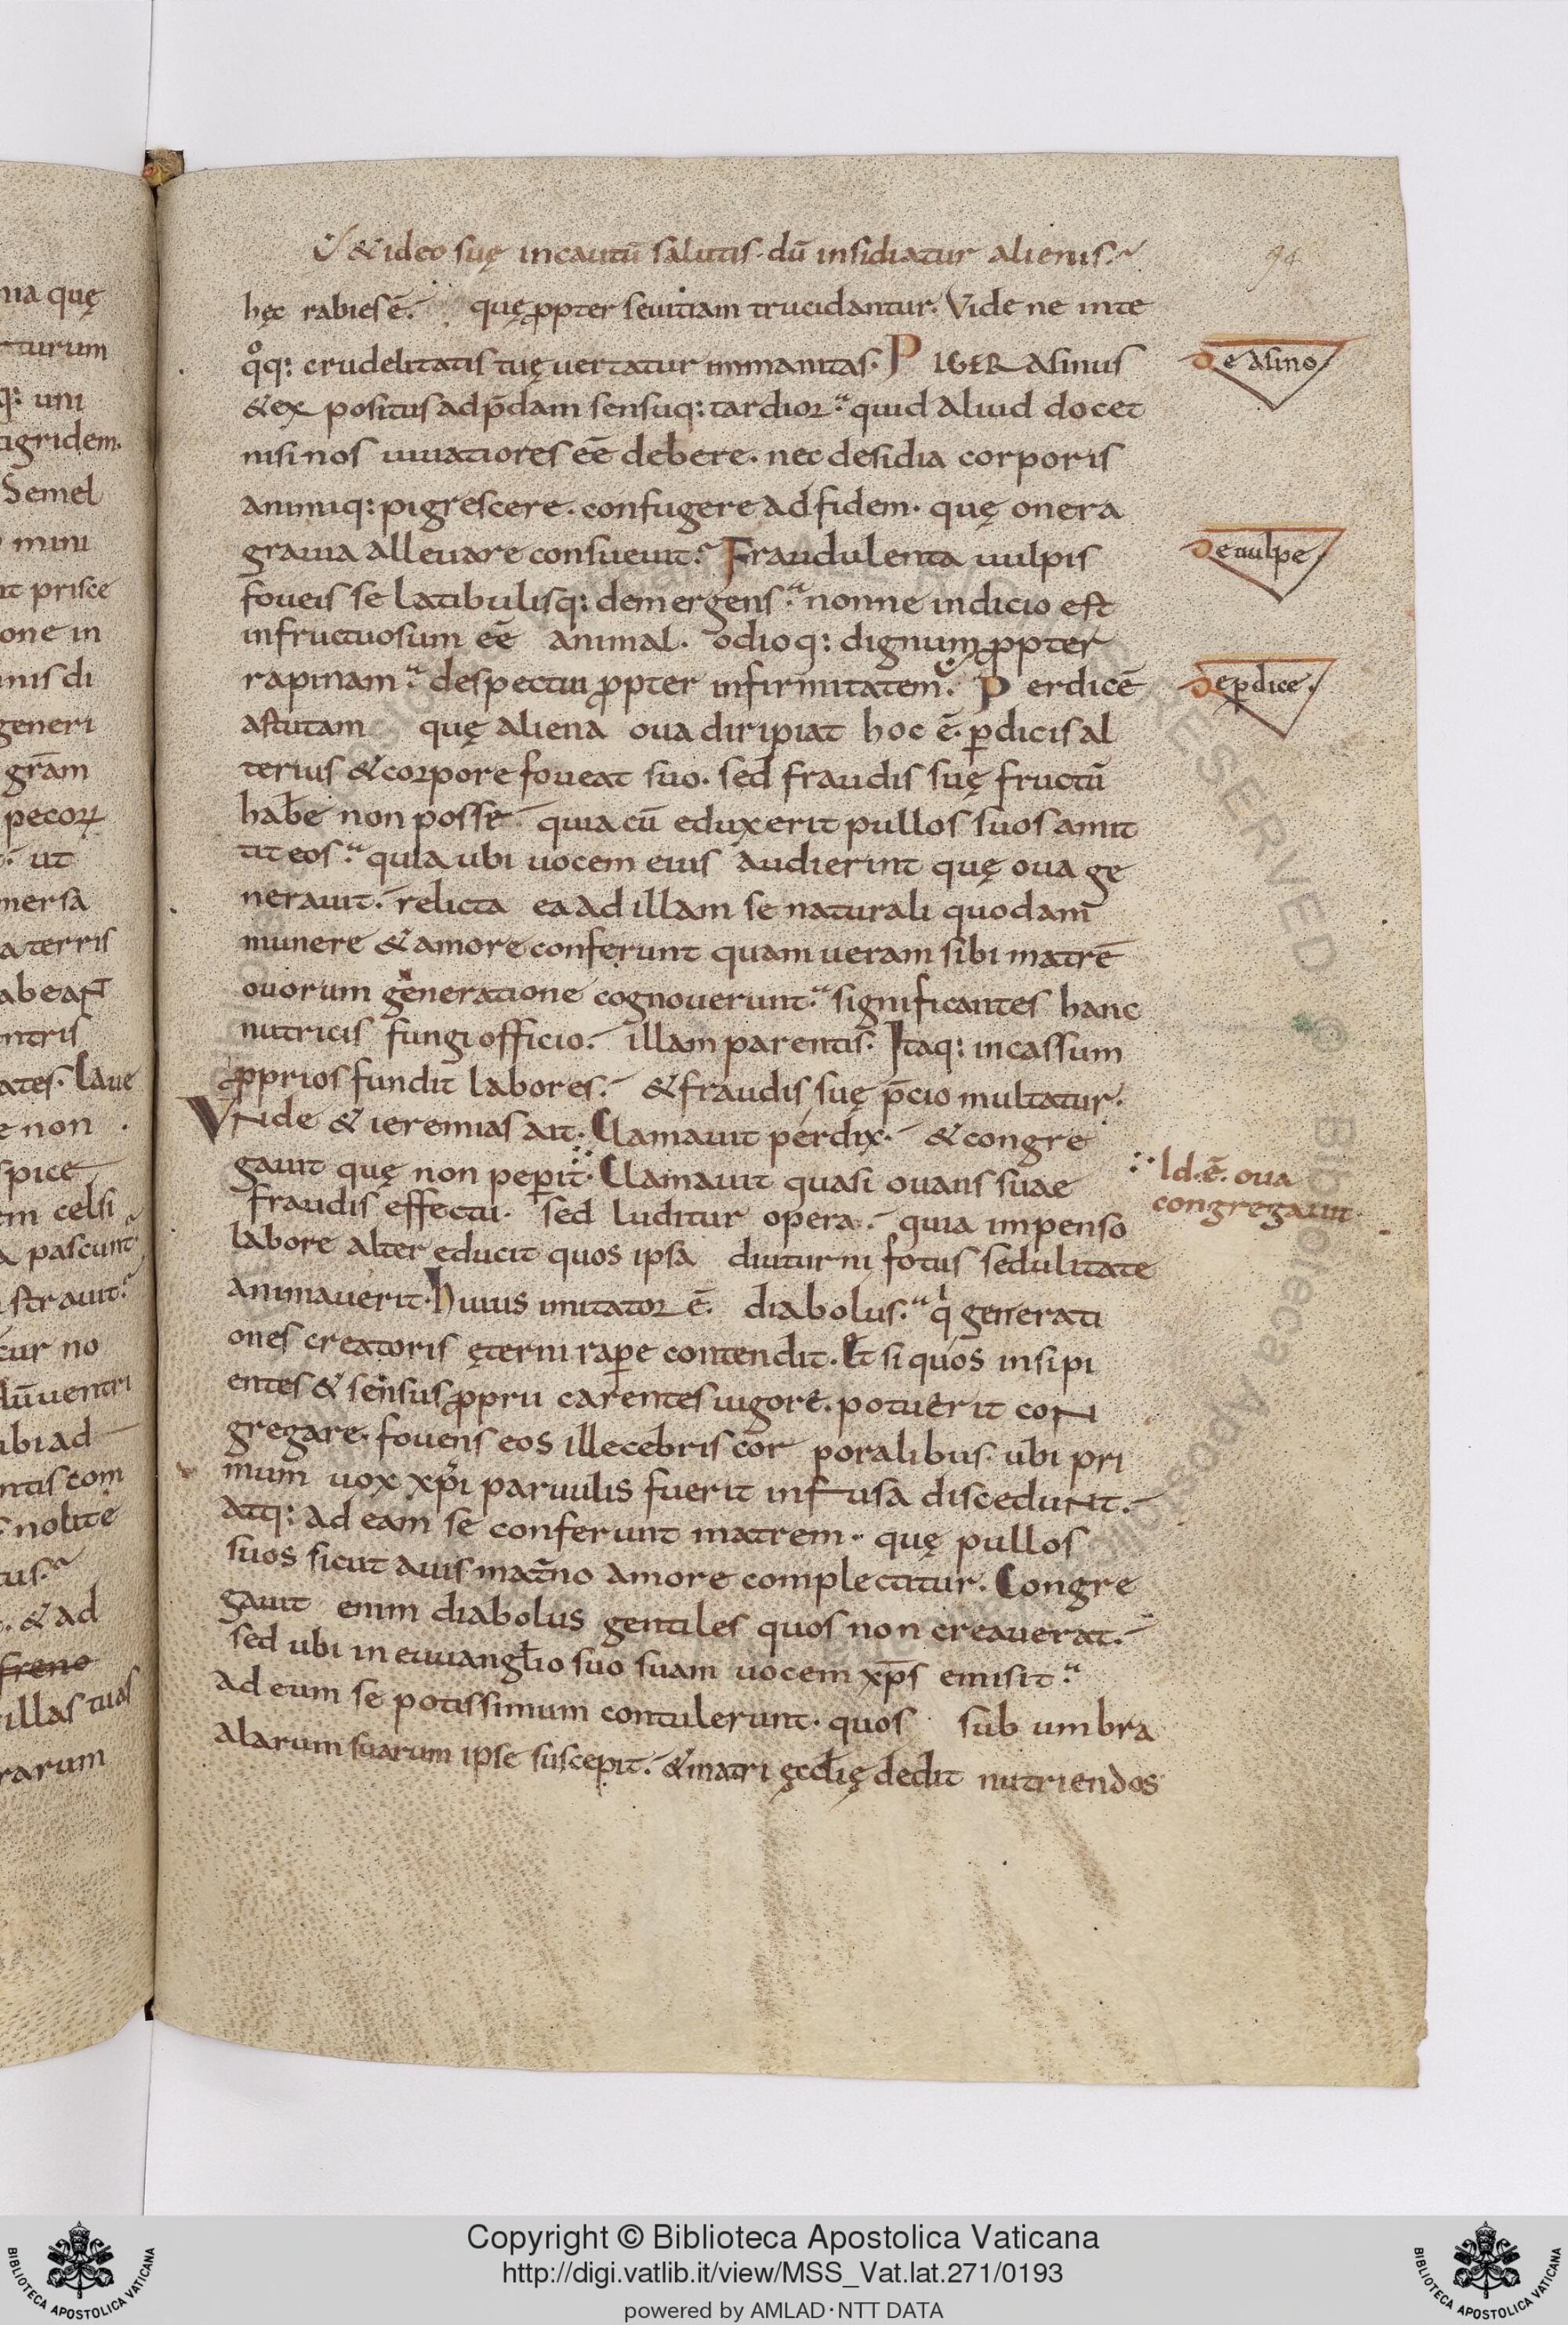 & ideo suę incautū salutis· dū insidiatur alienis.
94
hęc rabies ē. quę ꝓpter sevitiam trucidantur. Vide ne in te
qͦq: crudelitatis tuę vertatur inmanitas. PIGER asinus
& ex positus ad p̄dam sensuq: tardior. quid aliud docet
nisi nos vivatiores eē debere. nec desidia corporis
animiq: pigrescere. confugere ad fidem. quę onera
gravia allevare consuevit. Fraudulenta vulpis
foveis se latibulisq: demergens. nonne indicio est
infructuosum eē animal. odioq: dignum ꝓpter
rapinam. despectui ꝓpter infirmitatem. Perdicē
astutam quę aliena ova diripiat hoc ē. ꝑdicis al
terius & corpore foveat suo. sed fraudis suę fructū
habe non posse quia cū eduxerit pullos suos amit
tit eos. quia ubi vocem eius audierint quę ova ge
neravit. relicta ea ad illam se naturali quodam
munere & amore conferunt quam veram sibi matrē
ovorum generatione cognoverunt. significantes hanc
nutricis fungi officio. illam parentis. Itaq: incassum
ꝓprios fundit labores. & fraudis suę p̄cio multatur.
VNde & ieremias ait. Clamavit perdix. & congre
gavit quę non peꝑit. Clamavit quasi ovans suae
fraudis effectu. sed luditur opera. quia impenso
labore alter educit quos ipsa diuturni fotus sedulitate
animaverit. Huius imitator ē. diabolus. qͥ generati
ones creatoris ęterni raꝑe contendit. Et si quos insipi
entes & sensus ꝓprii carentes vigore. potuerit coN
gregare. fovens eos illecebris cor poralibus. ubi pri
mum vox xp̄i parvulis fuerit infusa discedunt.
Atq: ad eam se conferunt matrem. quę pullos
suos sicut avis mat̄no amore complectitur. Congre
gavit enim diabolus gentiles quos non creaverat.
sed ubi in euvangl̄io suo suam vocem xp̄s emisit.
ad eum se potissimum contulerunt. quos sub umbra
alarum suarum ipse suscepit. & matri ęccl̄ię dedit nutriendos
De Asino
De vulpe
De ꝑdice.
Id. ē. ova
congregavit
Copyright © Biblioteca Apostolica Vaticana
http://digi.vatlib.it/view/MSS_Vat.lat.271/0193
powered by AMLAD·NTT DATA
BIBLIOTECA APOSTOLICA VATICANA
BIBLIOTECA APOSTOLICA VATICANA